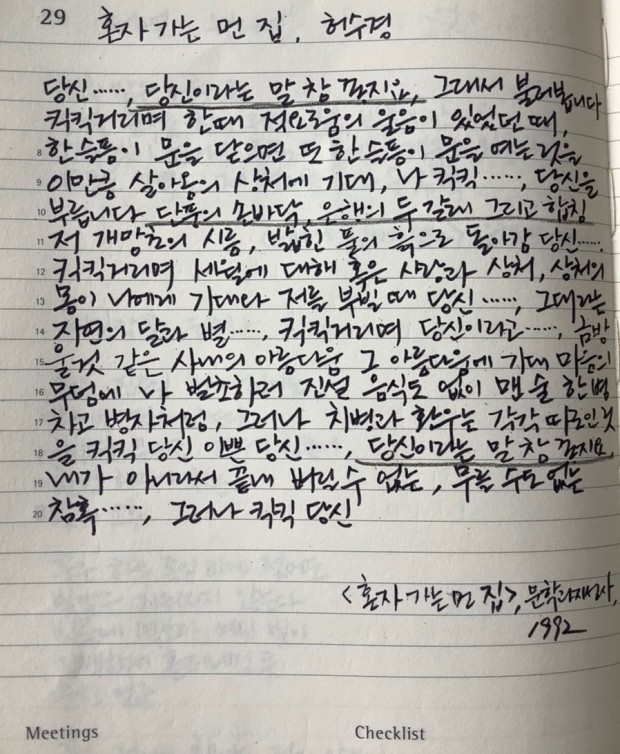 29 혼자 가는 먼 집, 허수경
당신……, 당신이라는 말 참 좋지요, 그래서 불러봅니다
킥킥거리며 한때 적요로움의 울음이 있었던 때,
8 한 슬픔이 문을 닫으면 또 한 슬픔이 문을 여는 것을
9 이만큼 살아옴의 상처에 기대, 나 킥킥……, 당신을
10 부릅니다 단풍의 손바닥, 은행의 두 갈래 그리고 합침
11 저 개망초의 시름, 밟힌 풀의 흙으로 돌아감 당신……,
12 킥킥거리며 세월에 대해 혹은 사랑과 상처, 상처의
13 몸이 나에게 기대와 저를 부빌 때 당신……, 그대라는
14 자연의 달과 별……, 킥킥거리며 당신이라고……, 금방
15 울 것 같은 사내의 아름다움 그 아름다움에 기대 마음의
16 무덤에 나 벌초하러 진설 음식도 없이 맨 술 한 병
17 차고 병자처럼, 그러나 치병과 환후는 각각 따로인 것
18 을 킥킥 당신 이쁜 당신……, 당신이라는 말 참 좋지요,
19 내가 아니라서 끝내 버릴 수 없는, 무를 수도 없는
20 참혹……, 그러나 킥킥 당신
<혼자 가는 먼 집>, 문학과지성사,
1992
Meetings Checklist